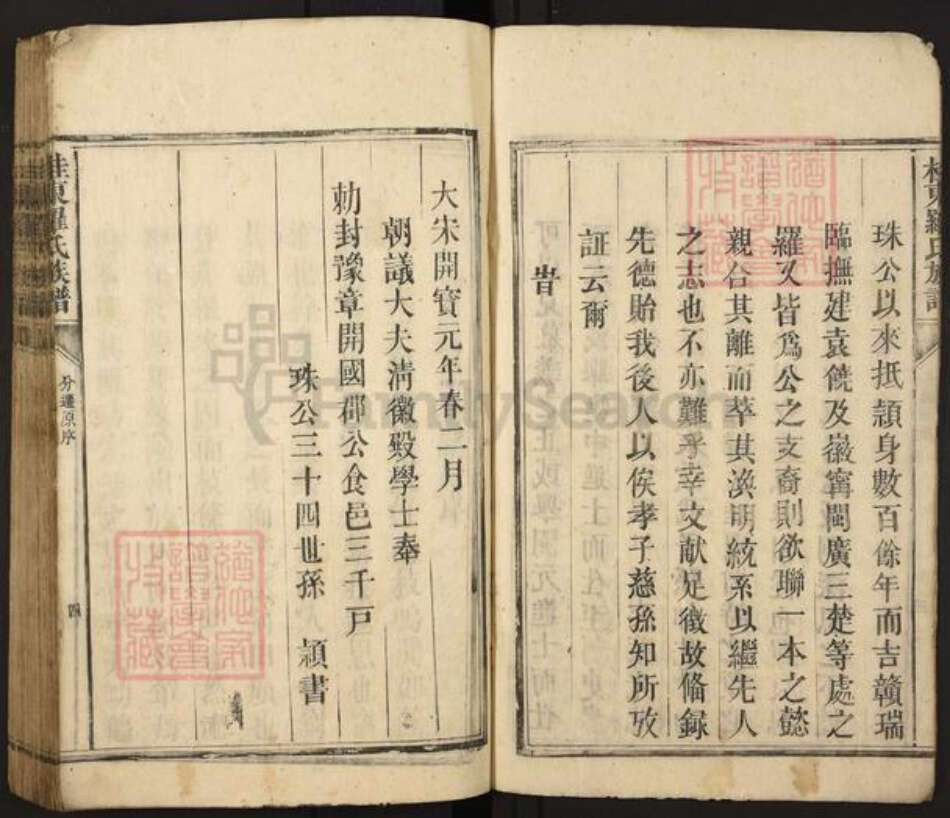 珠公以來抵頴身數百餘年而吉贛瑞
臨撫建袁饒及徽寗閩廣三楚等處之
羅又皆爲公之支裔則欲聯一本之懿
親合其離而萃其渙明統系以繼先人
之志也不亦難乎幸文献足徵故偹録
先德貽我後人以俟孝子慈孫知所攷
証云爾
旹
大宋開寳元年春二月
朝議大夫清徽殿學士奉
勅封豫章開國郡公食邑三千戸
珠公三十四世孫 頴書
桂東羅氏族譜
分遷原序
四
FamilySearch